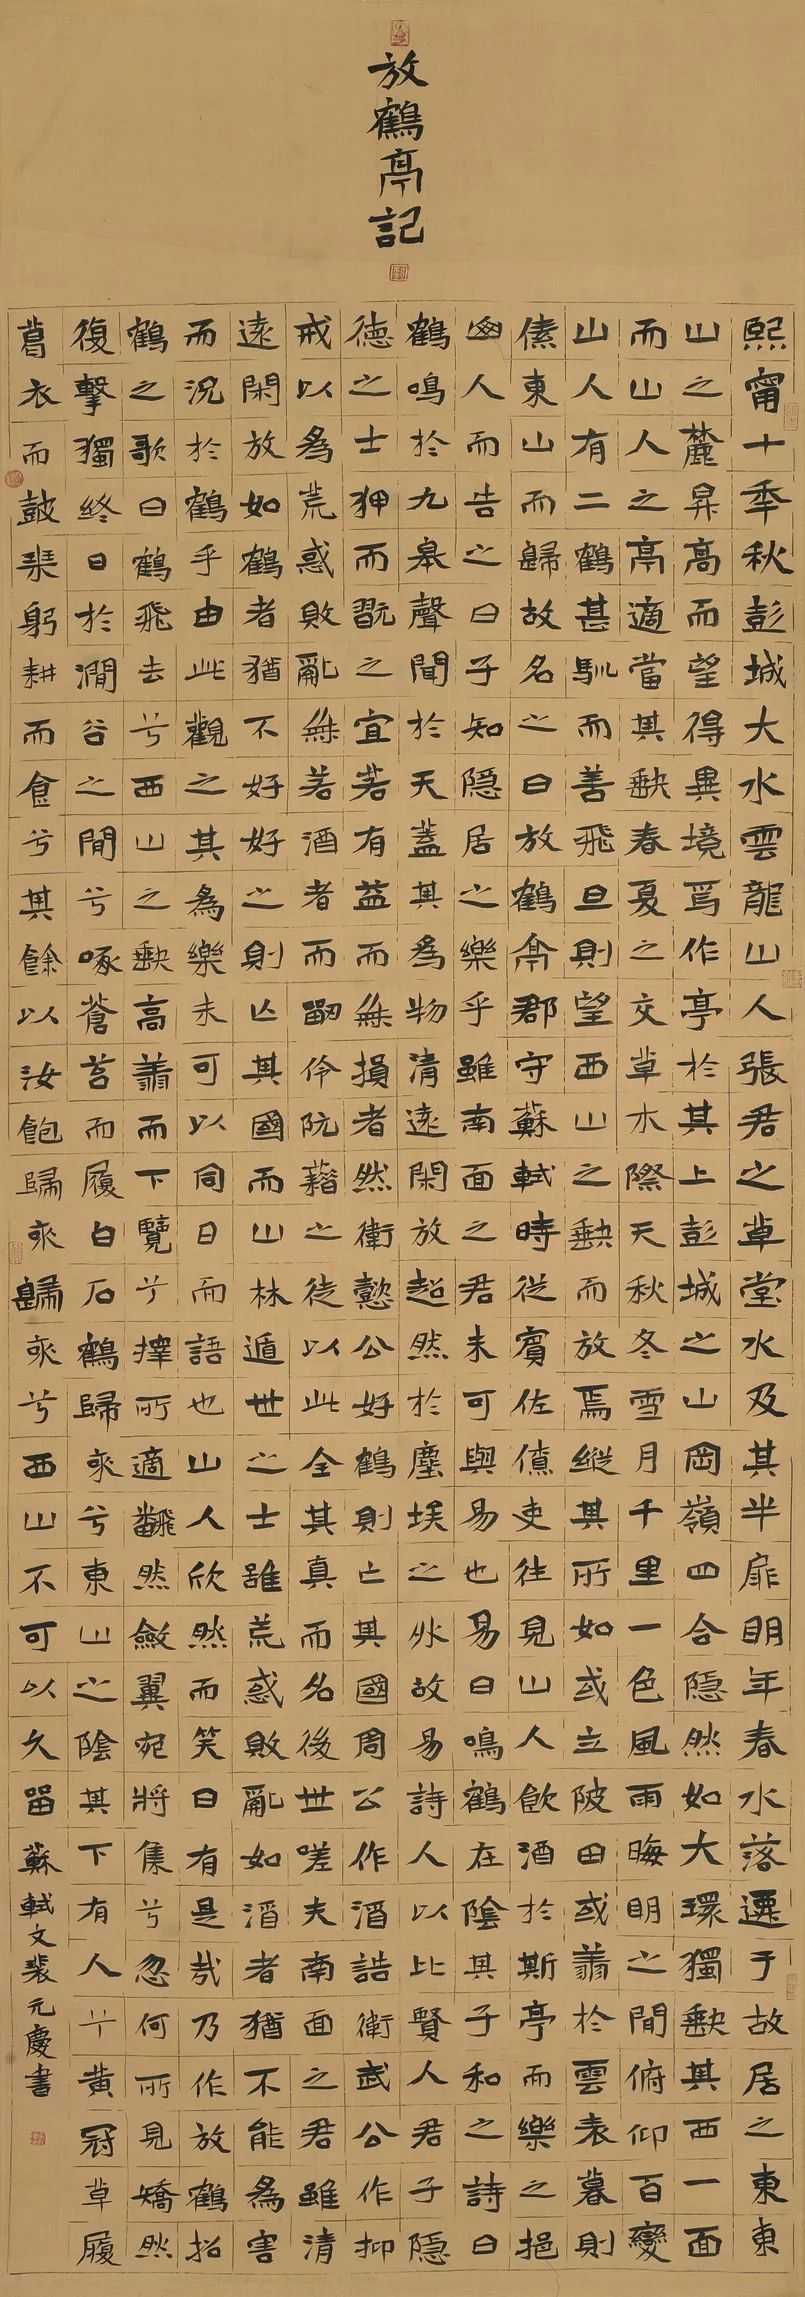 放鶴亭記
熙甯十年秋彭城大水雲龍山人張君之草堂水及其半扉明年春水落遷于故居之東東
山之麓昇高而望得異境焉作亭於其上彭城之山岡嶺四合隱然如大環獨缺其西一面
而山人之亭適當其缺春夏之交草木際天秋冬雪月千里一色風雨晦明之間俯仰百變
山人有二鶴甚馴而善飛旦則望西山之缺而放焉縱其所如或立陂田或翥於雲表暮則
傃東山而歸故名之曰放鶴亭郡守蘇軾時從賓佐僚吏往見山人飲酒於斯亭而樂之挹
山人而告之曰子知隱居之樂乎雖南面之君未可與易也易曰鳴鶴在陰其子和之詩曰
鶴鳴於九皋聲聞於天蓋其為物清遠閑放超然於塵埃之外故易詩人以比賢人君子隱
德之士狎而翫之宜若有益而無損者然衛懿公好鶴則亡其國周公作酒誥衛武公作抑
戒以為荒惑敗亂無若酒者而劉伶阮籍之徒以此全其真而名後世嗟夫南面之君雖清
遠閑放如鶴者猶不好好之則亡其國而山林遁世之士雖荒惑敗亂如酒者猶不能為害
而況於鶴乎由此觀之其為樂未可以同日而語也山人欣然而笑曰有是哉乃作放鶴招
鶴之歌曰鶴飛去兮西山之缺高翥而下覽兮擇所適翻然斂翼宛將集兮忽何所見矯然
復擊獨終日於澗谷之間兮啄蒼苔而履白石鶴歸來兮東山之陰其下有人兮黃冠草履
葛衣而鼓琴躬耕而食兮其餘以汝飽歸來歸來兮西山不可以久留蘇軾文裴元慶書